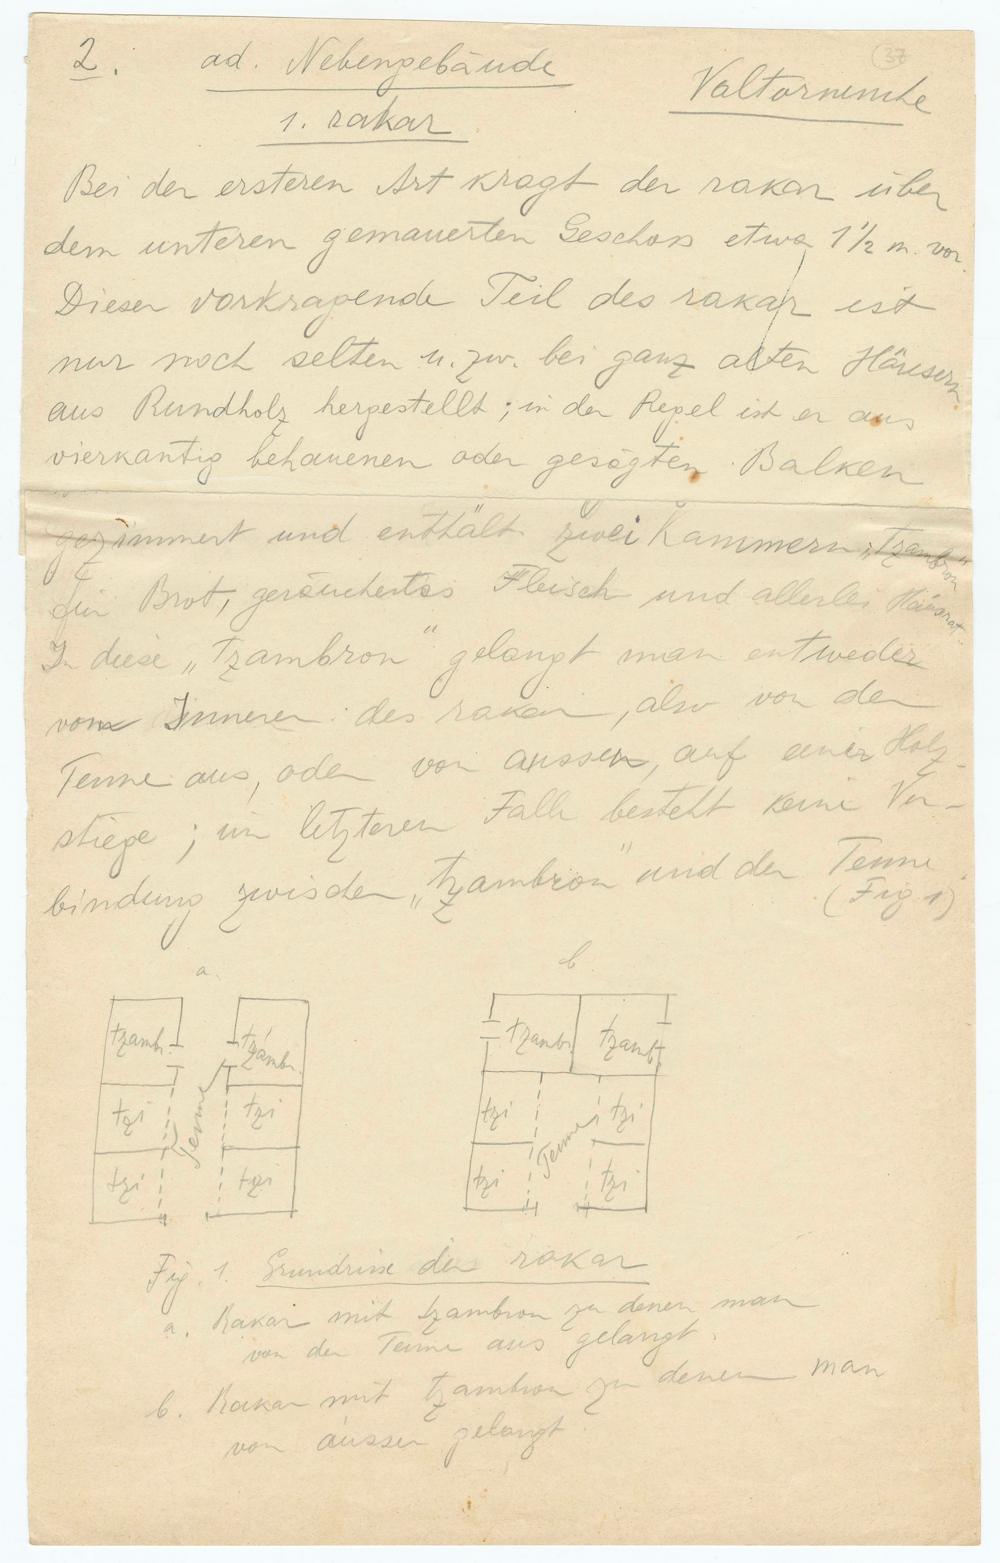 37
2. ad. Nebengebäude Valtornenche
1. rakar
Bei der ersteren Art kragt der rakar über
dem unteren gemauerten Geschoss etwa 1 1/2 m. vor.
Dieser vorkragende Teil des rakar ist
nur noch selten u. zw. bei ganz alten Häusern
aus Rundholz hergestellt; in der Regel ist er aus
vierkantig behauenen oder gesägten Balken
gezimmert und enthält zwei Kammern „tzambron"
für Brot, geräuchertes Fleisch und allerlei Hausrat
In diese „tzambron" gelangt man entweder
vom Inneren des rakar, also von der
Tenne aus, oder von aussen, auf einer Holz-
stiege; im letzteren Falle besteht keine Ver-
bindung zwischen „tzambron" und der Tenne
(Fig 1)
a. b.
tzambr. tzambr. tzambr. tzambr.
tzi tzi tzi tzi
Tenne Tenne
tzi tzi tzi tzi
Fig. 1. Grundrisse der rakar
a. Rakar mit tzambron zu denen man
von der Tenne aus gelangt.
b. Rakar mit tzambron zu denen man
von aussen gelangt